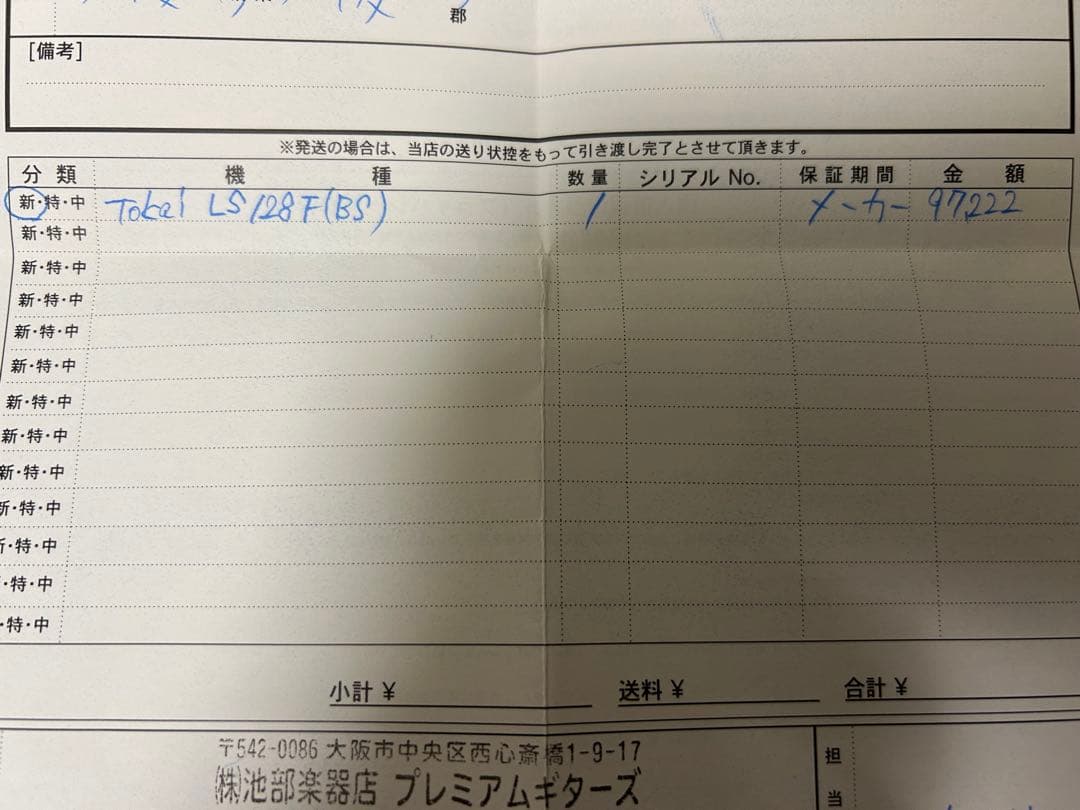 郡
[備考]
※発送の場合は、当店の送り状控をもって引き渡し完了とさせて頂きます。
分類 機種 数量 シリアル No. 保証期間 金額
新・特・中 Tokai LS128F(BS) 1 メーカー 97,222
新・特・中
新・特・中
新・特・中
新・特・中
新・特・中
新・特・中
新・特・中
新・特・中
新・特・中
新・特・中
・特・中
・特・中
小計 ¥ 送料 ¥ 合計 ¥
〒542-0086 大阪市中央区西心斎橋1-9-17
㈱池部楽器店 プレミアムギターズ
担
当